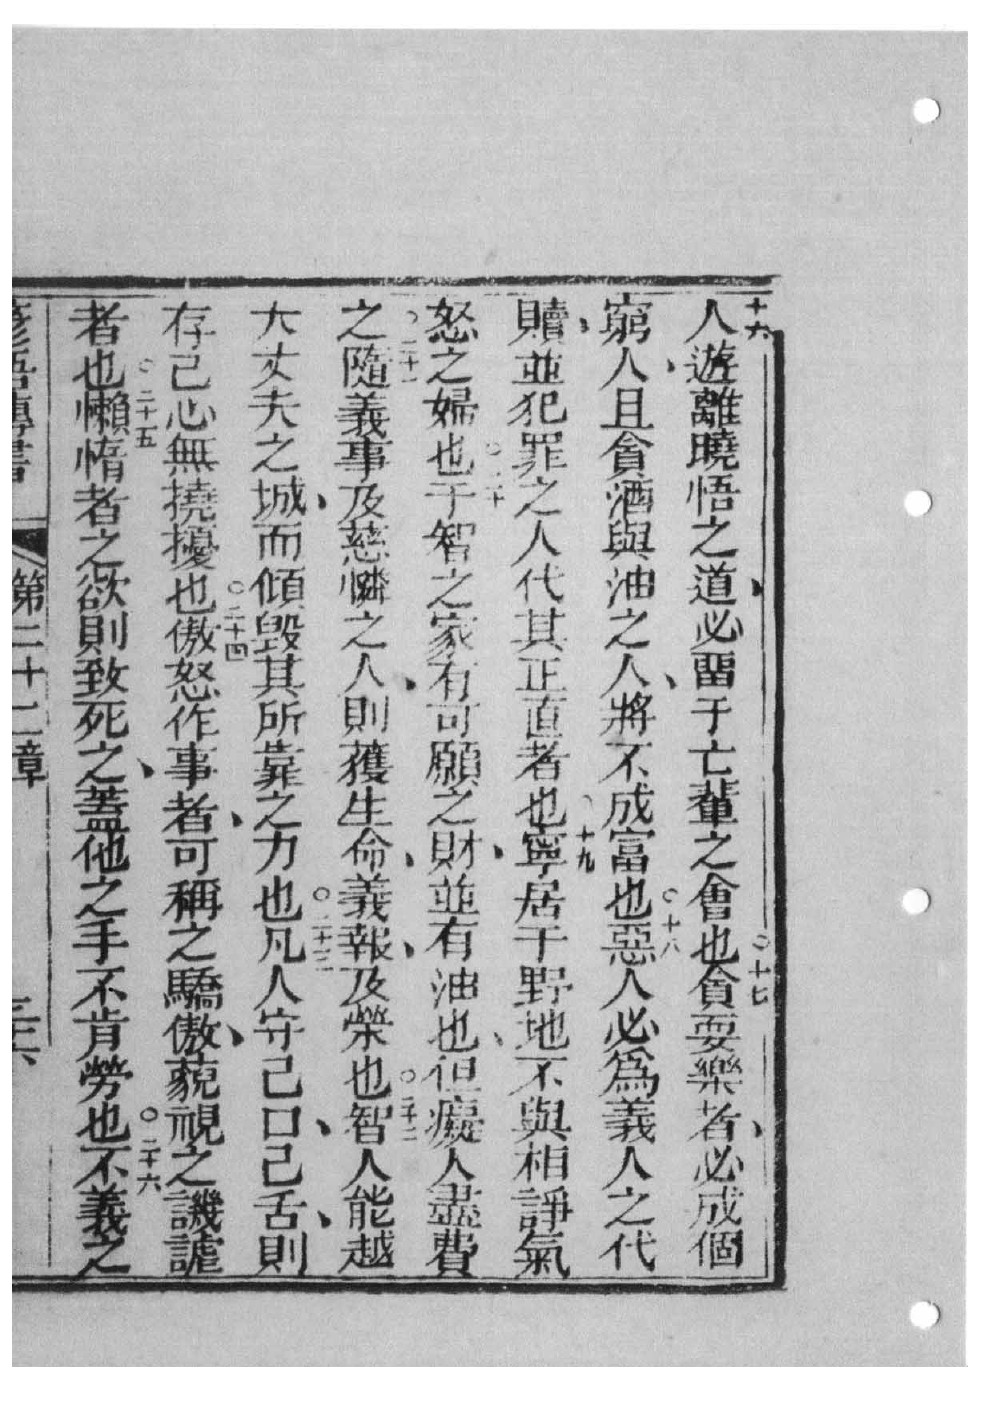 十六人遊離曉悟之道、必畱于亡輩之會也。十七貪耍樂者、必成個
窮人、且貪酒與油之人、將不成富也。十八惡人必爲義人之代
贖、並犯罪之人代其正直者也。十九寧居于野地不與相諍氣
怒之婦也。二十于智之家有可願之財、並有油也、但癡人盡費
之。二十一隨義事及慈憐之人、則獲生命、義報、及榮也。二十二智人能越
大丈夫之城、而傾毀其所靠之力也。二十三凡人守己口、己舌、則
存己心無撓擾也。二十四傲怒作事者、可稱之驕傲、藐視之譏謔
者也。二十五懶惰者之欲則致死之、蓋他之手不肯勞也。二十六不義之
諺語傳書 第二十二章 三六